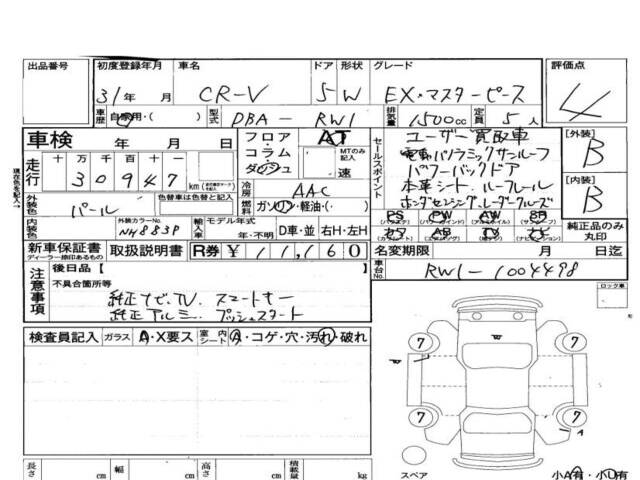 出品番号 初度登録年月 車名 ドア 形状 グレード 評価点
31年 月 CR-V 5 W EX・マスターピース 4
車歴 自家用・( ) 型式 DBA - RW1 排気量 1500cc 定員 5人
車検 年 月 日
フロア・コラム・ダッシュ AT MTのみ記入 速
セールスポイント
ユーザー買取車
電動パノラミックサンルーフ
パワーバックドア
本革シート、ルーフレール
ホンダセンシング、レーダークルーズ
[外装] B
[内装] B
現在をも記入→
走行 十 万 千 百 十 一
3 0 9 4 7 km
冷房 AAC
外装色 パール 色替車は色替と記入
燃料 ガソリン・軽油・( )
内装色 外装カラーNo. NH883P
輸入車 モデル年式 年・不明 D車・並 右H・左H
PS PW AW SR
純正品のみ丸印
新車保証書 ディーラー捺印あるもの 取扱説明書 R券 ¥11,160
名変期限 月 日迄
車台No. RW1-1004498
注意事項
後日品【
不具合箇所等
純正ナビ、TV、スマートキー
純正アルミ、プッシュスタート
ロック車
検査員記入 ガラス A・X要ス 室内シート A・コゲ・穴・汚れ・破れ
7 7
7 7
W
A
スペア
小A有・小U有
長さ cm 幅 cm 高さ cm 積載量 kg